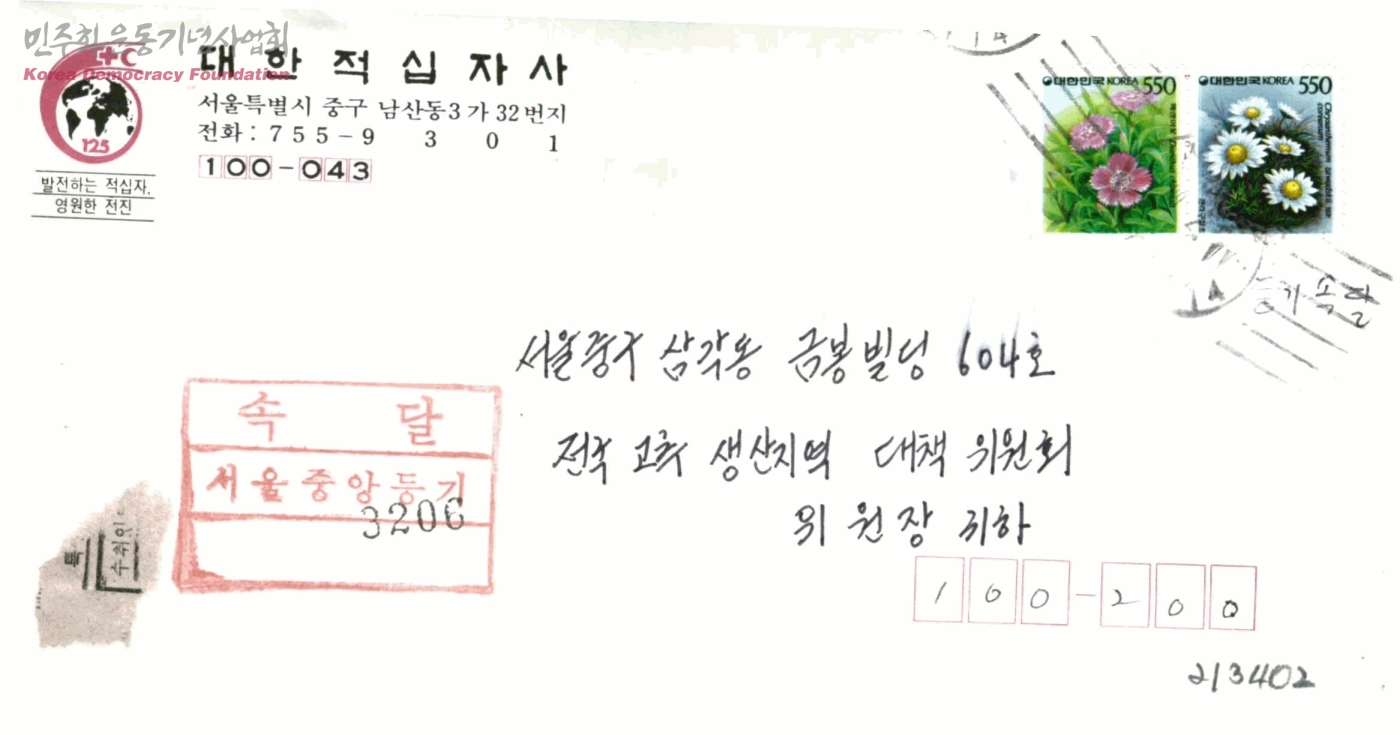 민주화운동기념사업회
Korea Democracy Foundation
대한적십자사
서울특별시 중구 남산동3가 32번지
전화: 755-9301
100-043
125
발전하는 적십자,
영원한 전진
대한민국 KOREA 550
대한민국 KOREA 550
등기속달
서울중구 삼각동 금봉빌딩 604호
전국 고추 생산지역 대책 위원회
위원장 귀하
100-200
213402
속달
서울중앙등기
3206
특
수취인